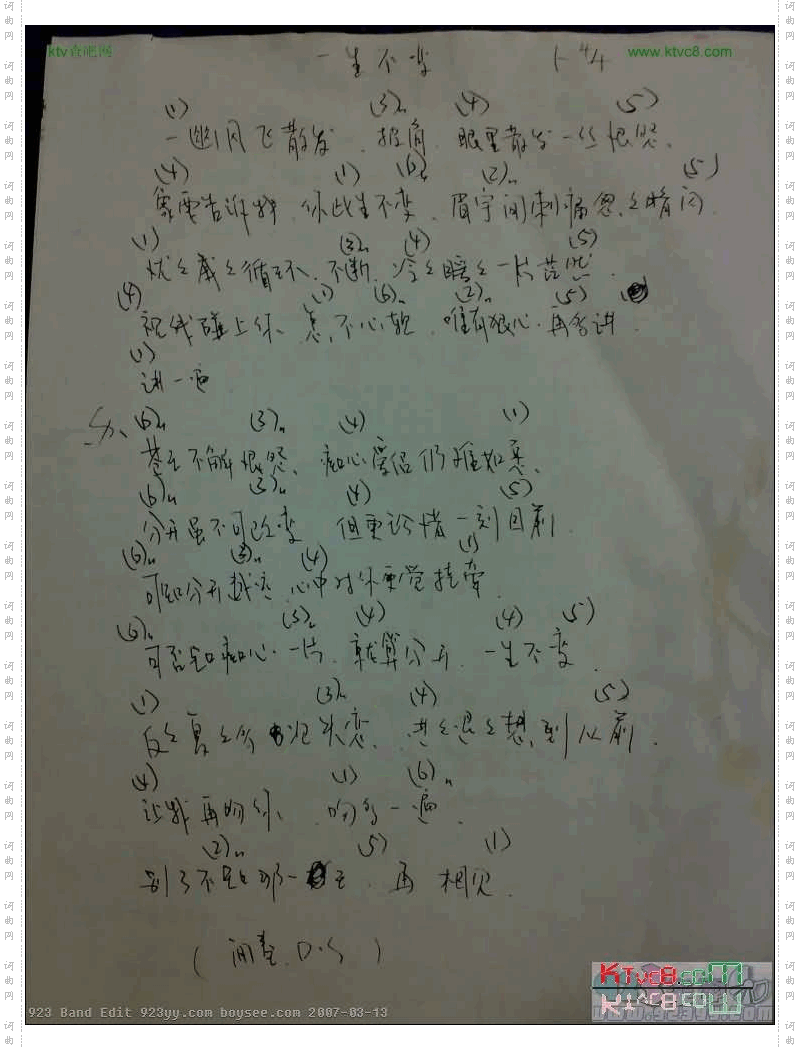 ktv酷吧网
www.ktvc8.com
一生不变 1=4/4
(1) (3)m (4) (5)
一幽风飞散发 披肩 眼里散发一丝恨怨
(4) (1) (6)m (2)m (5)
象要告诉我 你此生不变 眉宇间刺痛忽忽暗闪
(1) (3)m (4) (5)
忧忧戚戚循环不断 冷冷暖暖一片茫然
(4) (1) (6)m (2)m (5)
视线碰上你 怎不心软 唯有狠心再多讲
(1)
讲一遍
(6)m (3)m (4) (1)
苍天不解恨怨 痴心爱侣仍难如愿
(6)m (3)m (4) (5)
分开虽不可改变 但更珍惜一刻目前
(6)m (3)m (4) (1)
可知分开越远 心中对你更觉挂牵
(6)m (3)m (4) (4) (5)
可否知痴心一片 就算分开 一生不变
(1) (3)m (4) (5)
反反复复多次失恋 进进退退想到从前
(4) (1) (6)m
让我再吻你 吻多一遍
(2)m (5) (1)
别了不知哪一天 再相见
(间奏 D.S)
KTvc8.com
923 Band Edit 923yy.com boysee.com 2007-03-13